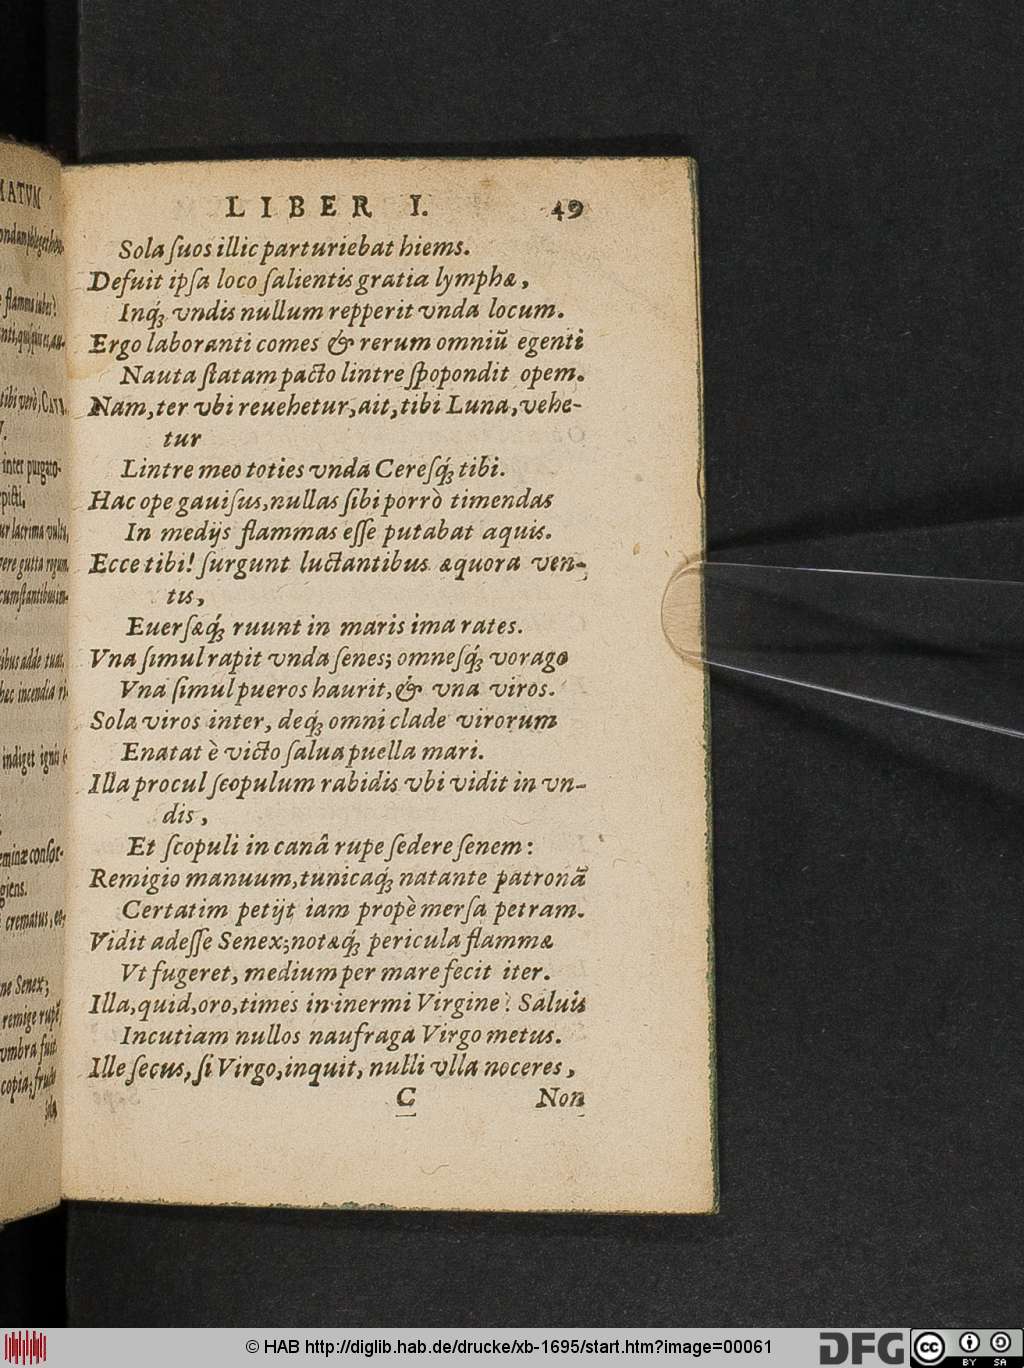 LIBER I. 49
Sola ſuos illic parturiebat hiems.
Defuit ipſa loco ſalientis gratia lymphæ,
Inq́; vndis nullum repperit vnda locum.
Ergo laboranti comes & rerum omniũ egenti
Nauta ſtatam pacto lintre ſpopondit opem.
Nam, ter vbi reuehetur, ait, tibi Luna, vehe-
tur
Lintre meo toties vnda Cereſq́; tibi.
Hac ope gauiſus, nullas ſibi porrò timendas
In medijs flammas eſſe putabat aquis.
Ecce tibi! ſurgunt luctantibus æquora ven-
tis,
Euerſæq́; ruunt in maris ima rates.
Vna ſimul rapit vnda ſenes; omneſq́; vorago
Vna ſimul pueros haurit, & vna viros.
Sola viros inter, deq́; omni clade virorum
Enatat è victo ſalua puella mari.
Illa procul ſcopulum rabidis vbi vidit in vn-
dis,
Et ſcopuli in canâ rupe ſedere ſenem:
Remigio manuum, tunicaq́; natante patronã
Certatim petijt iam propè merſa petram.
Vidit adeſſe Senex; notæq́; pericula flammæ
Vt fugeret, medium per mare fecit iter.
Illa, quid, oro, times in inermi Virgine? Saluis
Incutiam nullos naufraga Virgo metus.
Ille ſecus, ſi Virgo, inquit, nulli vlla noceres,
C Non
© HAB http://diglib.hab.de/drucke/xb-1695/start.htm?image=00061
DFG
cc BY SA